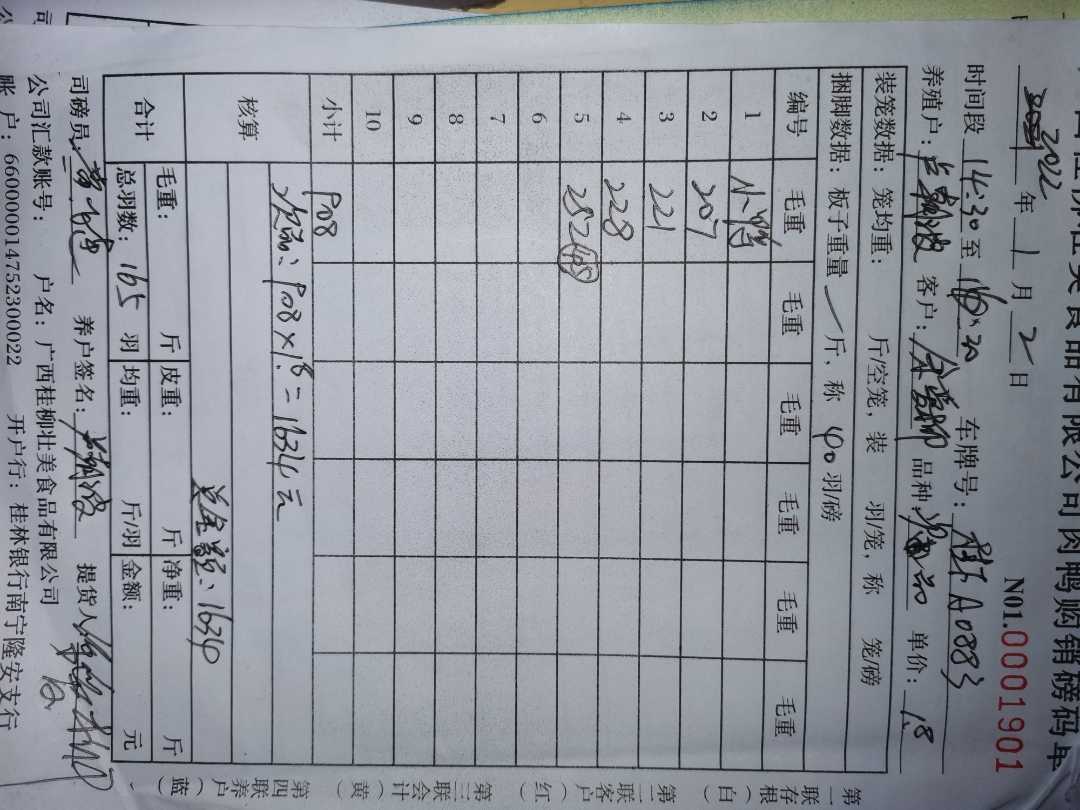 食品有限公司肉鸭购销磅码单
N01.00001901
2022 年 1 月 2 日
时间段 14:30 至 车牌号: 桂A0883
养殖户: 客户: 品种 单价: 1.8
装笼数据: 笼均重: 斤/空笼, 装 羽/笼, 称 笼/磅
捆脚数据: 板子重量 斤, 称 40 羽/磅
编号 毛重 毛重 毛重 毛重 毛重 毛重
1
2 207
3 221
4 228
5 252 45
6
7
8
9
10
小计 908
核算 908×1.8=1634元
总金额: 1634
合计 毛重: 斤 皮重: 斤 净重: 斤
总羽数: 165 羽 均重: 斤/羽 金额: 元
司磅员: 养户签名: 提货人
公司汇款账号: 户名: 广西桂柳壮美食品有限公司
账户: 660000147523000022 开户行: 桂林银行南宁隆安支行
第一联存根(白)
第二联客户(红)
第三联会计(黄)
第四联养户(蓝)